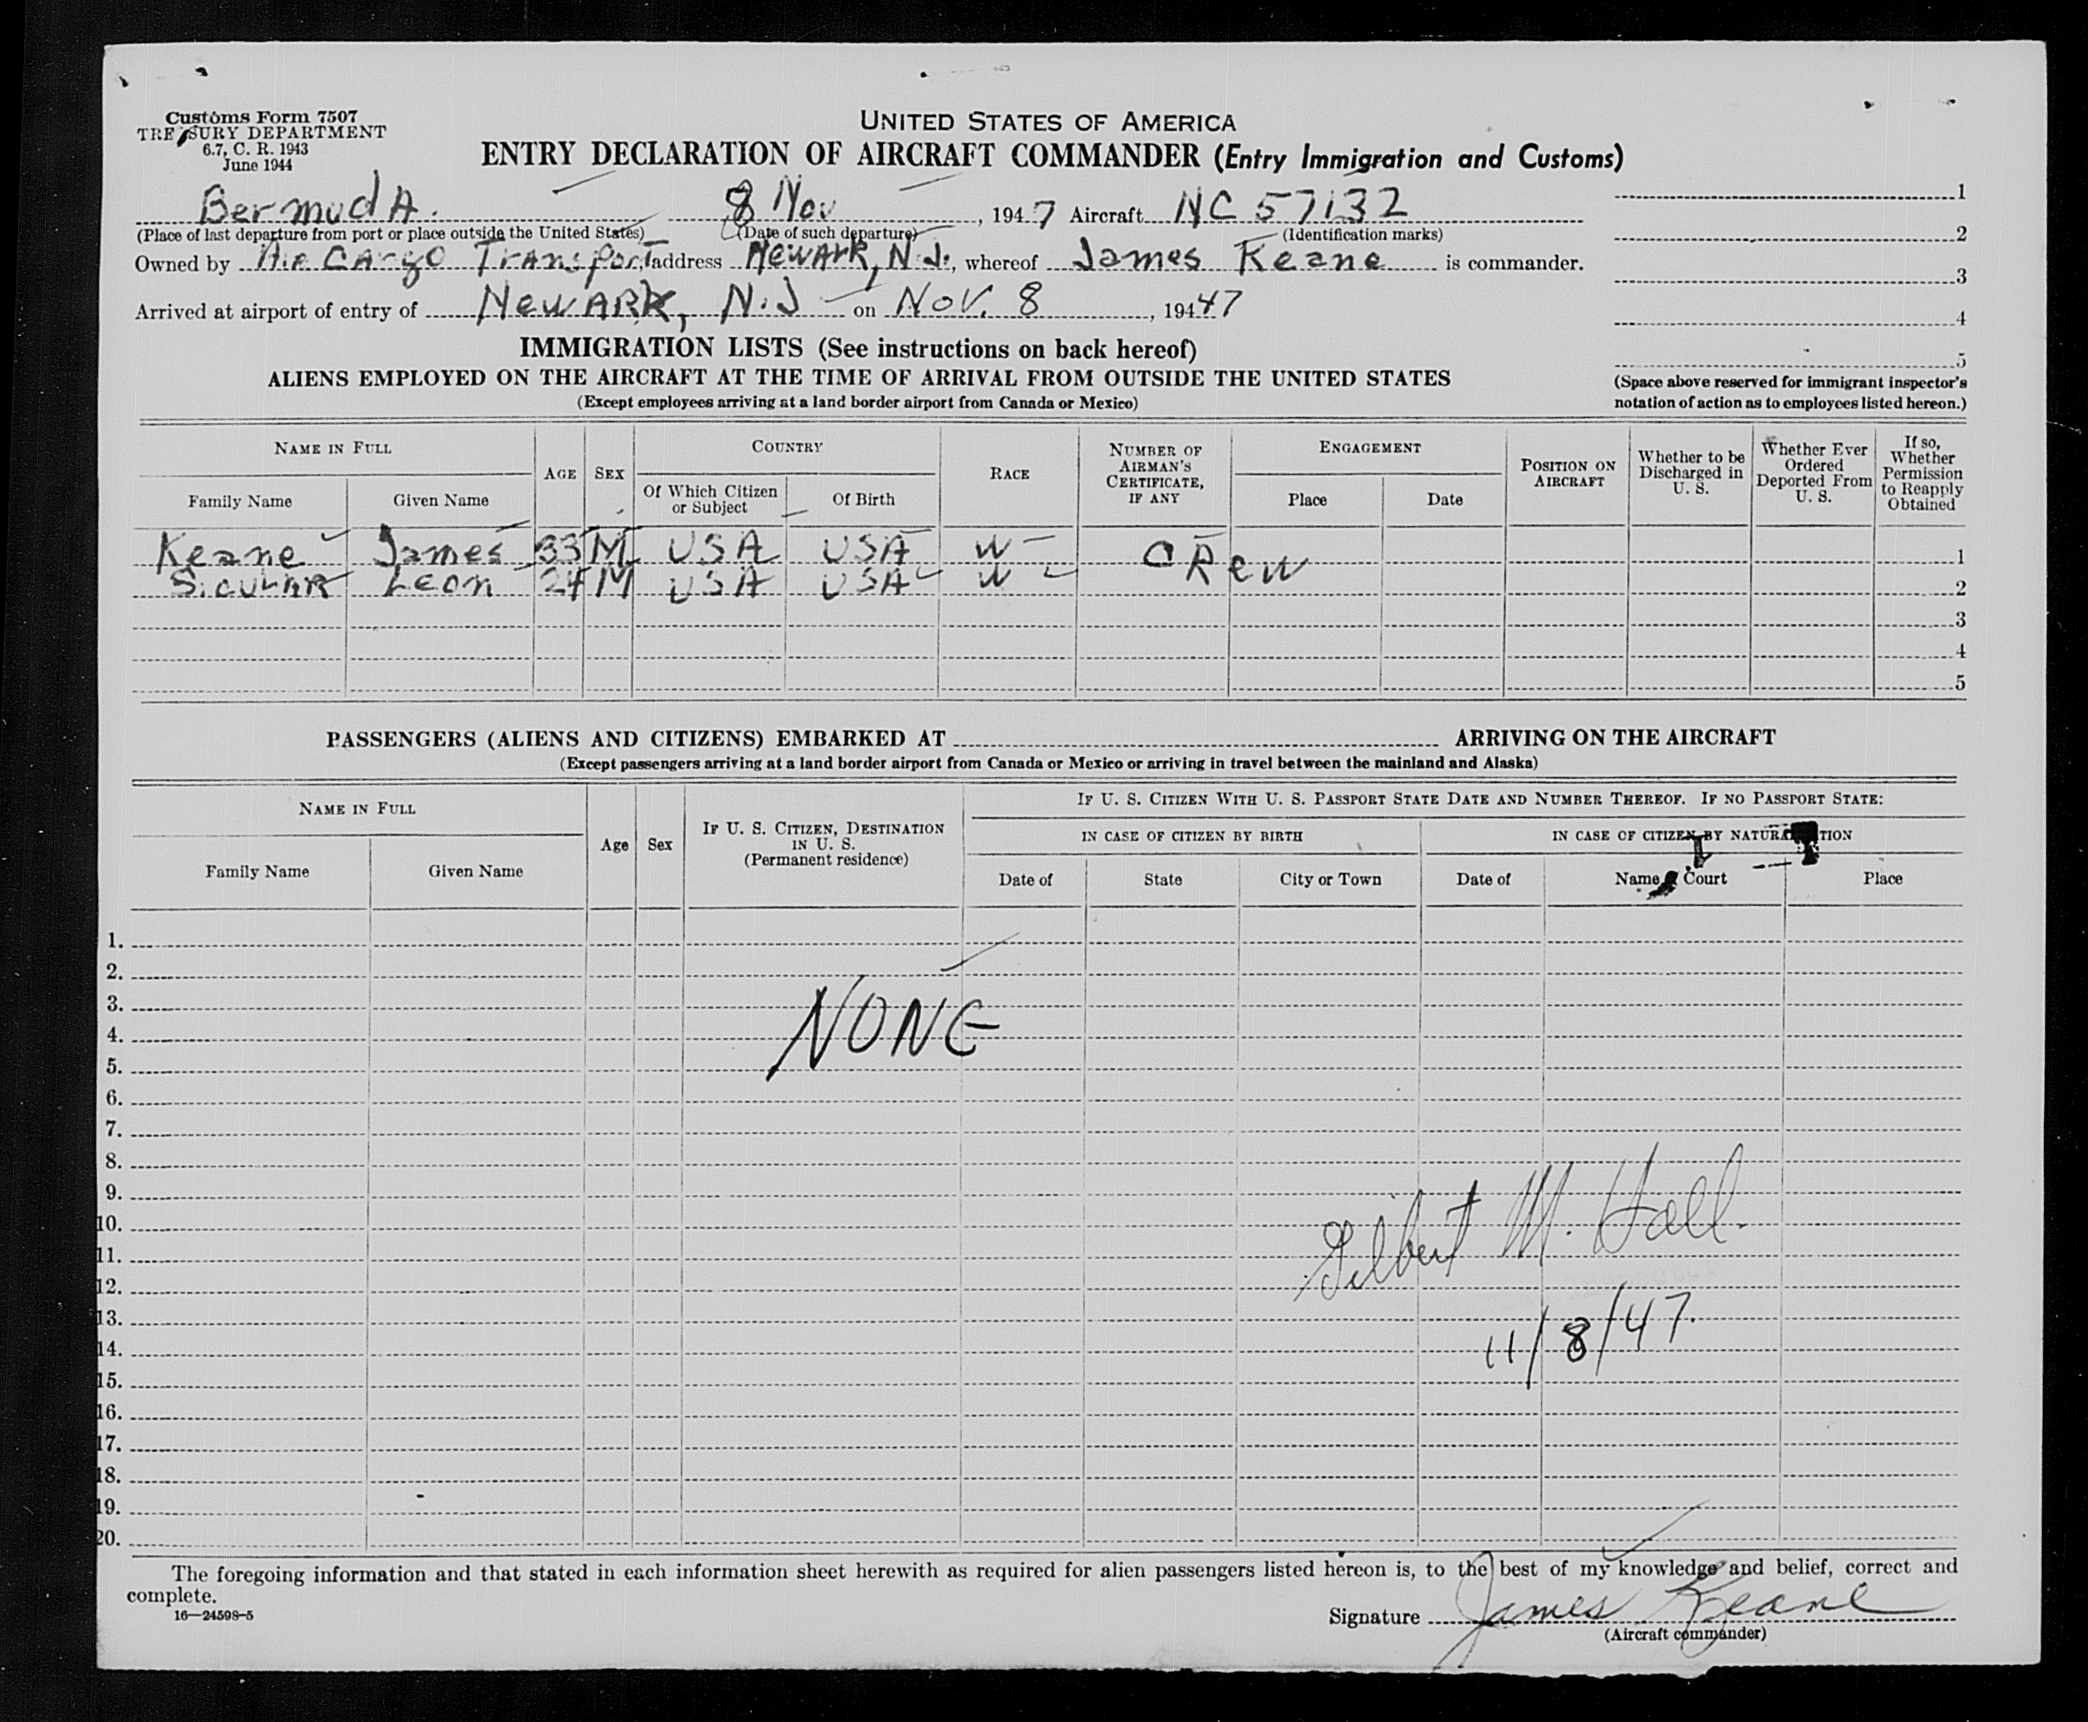 Customs Form 7507
TREASURY DEPARTMENT
6.7, C. R. 1943
June 1944
UNITED STATES OF AMERICA
ENTRY DECLARATION OF AIRCRAFT COMMANDER (Entry Immigration and Customs)
BermudA. 8 Nov , 1947 Aircraft NC 57132
(Place of last departure from port or place outside the United States) (Date of such departure) (Identification marks)
Owned by Air Cargo Transport, address Newark, N.J., whereof James Keane is commander.
Arrived at airport of entry of Newark, N.J on Nov. 8 , 19447
1
2
3
4
5
(Space above reserved for immigrant inspector's
notation of action as to employees listed hereon.)
IMMIGRATION LISTS (See instructions on back hereof)
ALIENS EMPLOYED ON THE AIRCRAFT AT THE TIME OF ARRIVAL FROM OUTSIDE THE UNITED STATES
(Except employees arriving at a land border airport from Canada or Mexico)
NAME IN FULL
Family Name Given Name
AGE SEX
COUNTRY
Of Which Citizen or Subject Of Birth
RACE
NUMBER OF AIRMAN'S CERTIFICATE, IF ANY
ENGAGEMENT
Place Date
POSITION ON AIRCRAFT
Whether to be Discharged in U. S.
Whether Ever Ordered Deported From U. S.
If so, Whether Permission to Reapply Obtained
Keane James 33 M USA USA W CRew 1
Sicular Leon 24 M USA USA W 2
3
4
5
PASSENGERS (ALIENS AND CITIZENS) EMBARKED AT ARRIVING ON THE AIRCRAFT
(Except passengers arriving at a land border airport from Canada or Mexico or arriving in travel between the mainland and Alaska)
NAME IN FULL
Family Name Given Name
Age Sex
IF U. S. CITIZEN, DESTINATION IN U. S.
(Permanent residence)
IF U. S. CITIZEN WITH U. S. PASSPORT STATE DATE AND NUMBER THEREOF. IF NO PASSPORT STATE:
IN CASE OF CITIZEN BY BIRTH IN CASE OF CITIZEN BY NATURALIZATION
Date of State City or Town Date of Name of Court Place
1.
2.
3.
NONE
4.
5.
6.
7.
8.
9.
10.
Gilbert M. Hall.
11.
12.
13.
11/8/47.
14.
15.
16.
17.
18.
19.
20.
The foregoing information and that stated in each information sheet herewith as required for alien passengers listed hereon is, to the best of my knowledge and belief, correct and
complete.
16—24598-5
Signature James Keane
(Aircraft commander)